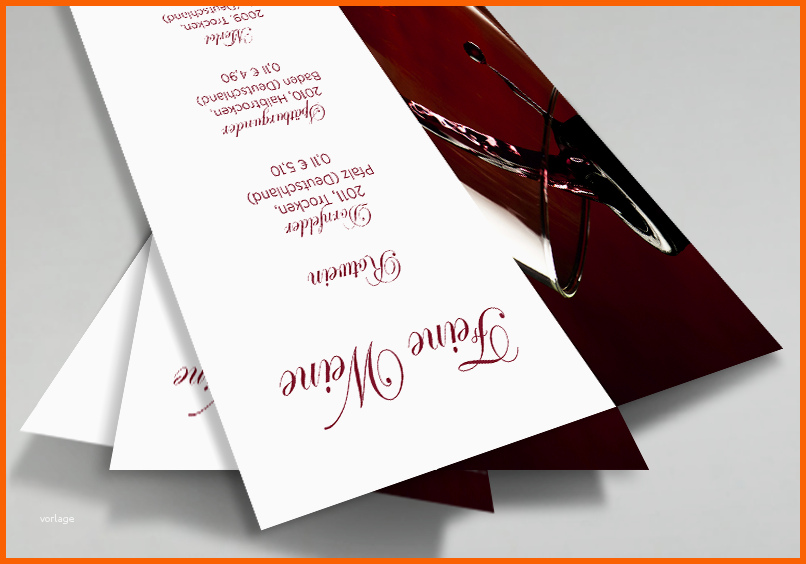 Feine Weine
Rotwein
Dornfelder
2011, Trocken,
Pfalz (Deutschland)
0,1l € 5,10
Spätburgunder
2010, Halbtrocken,
Baden (Deutschland)
0,1l € 4,90
Merlot
2009, Trocken,
ne
vorlage